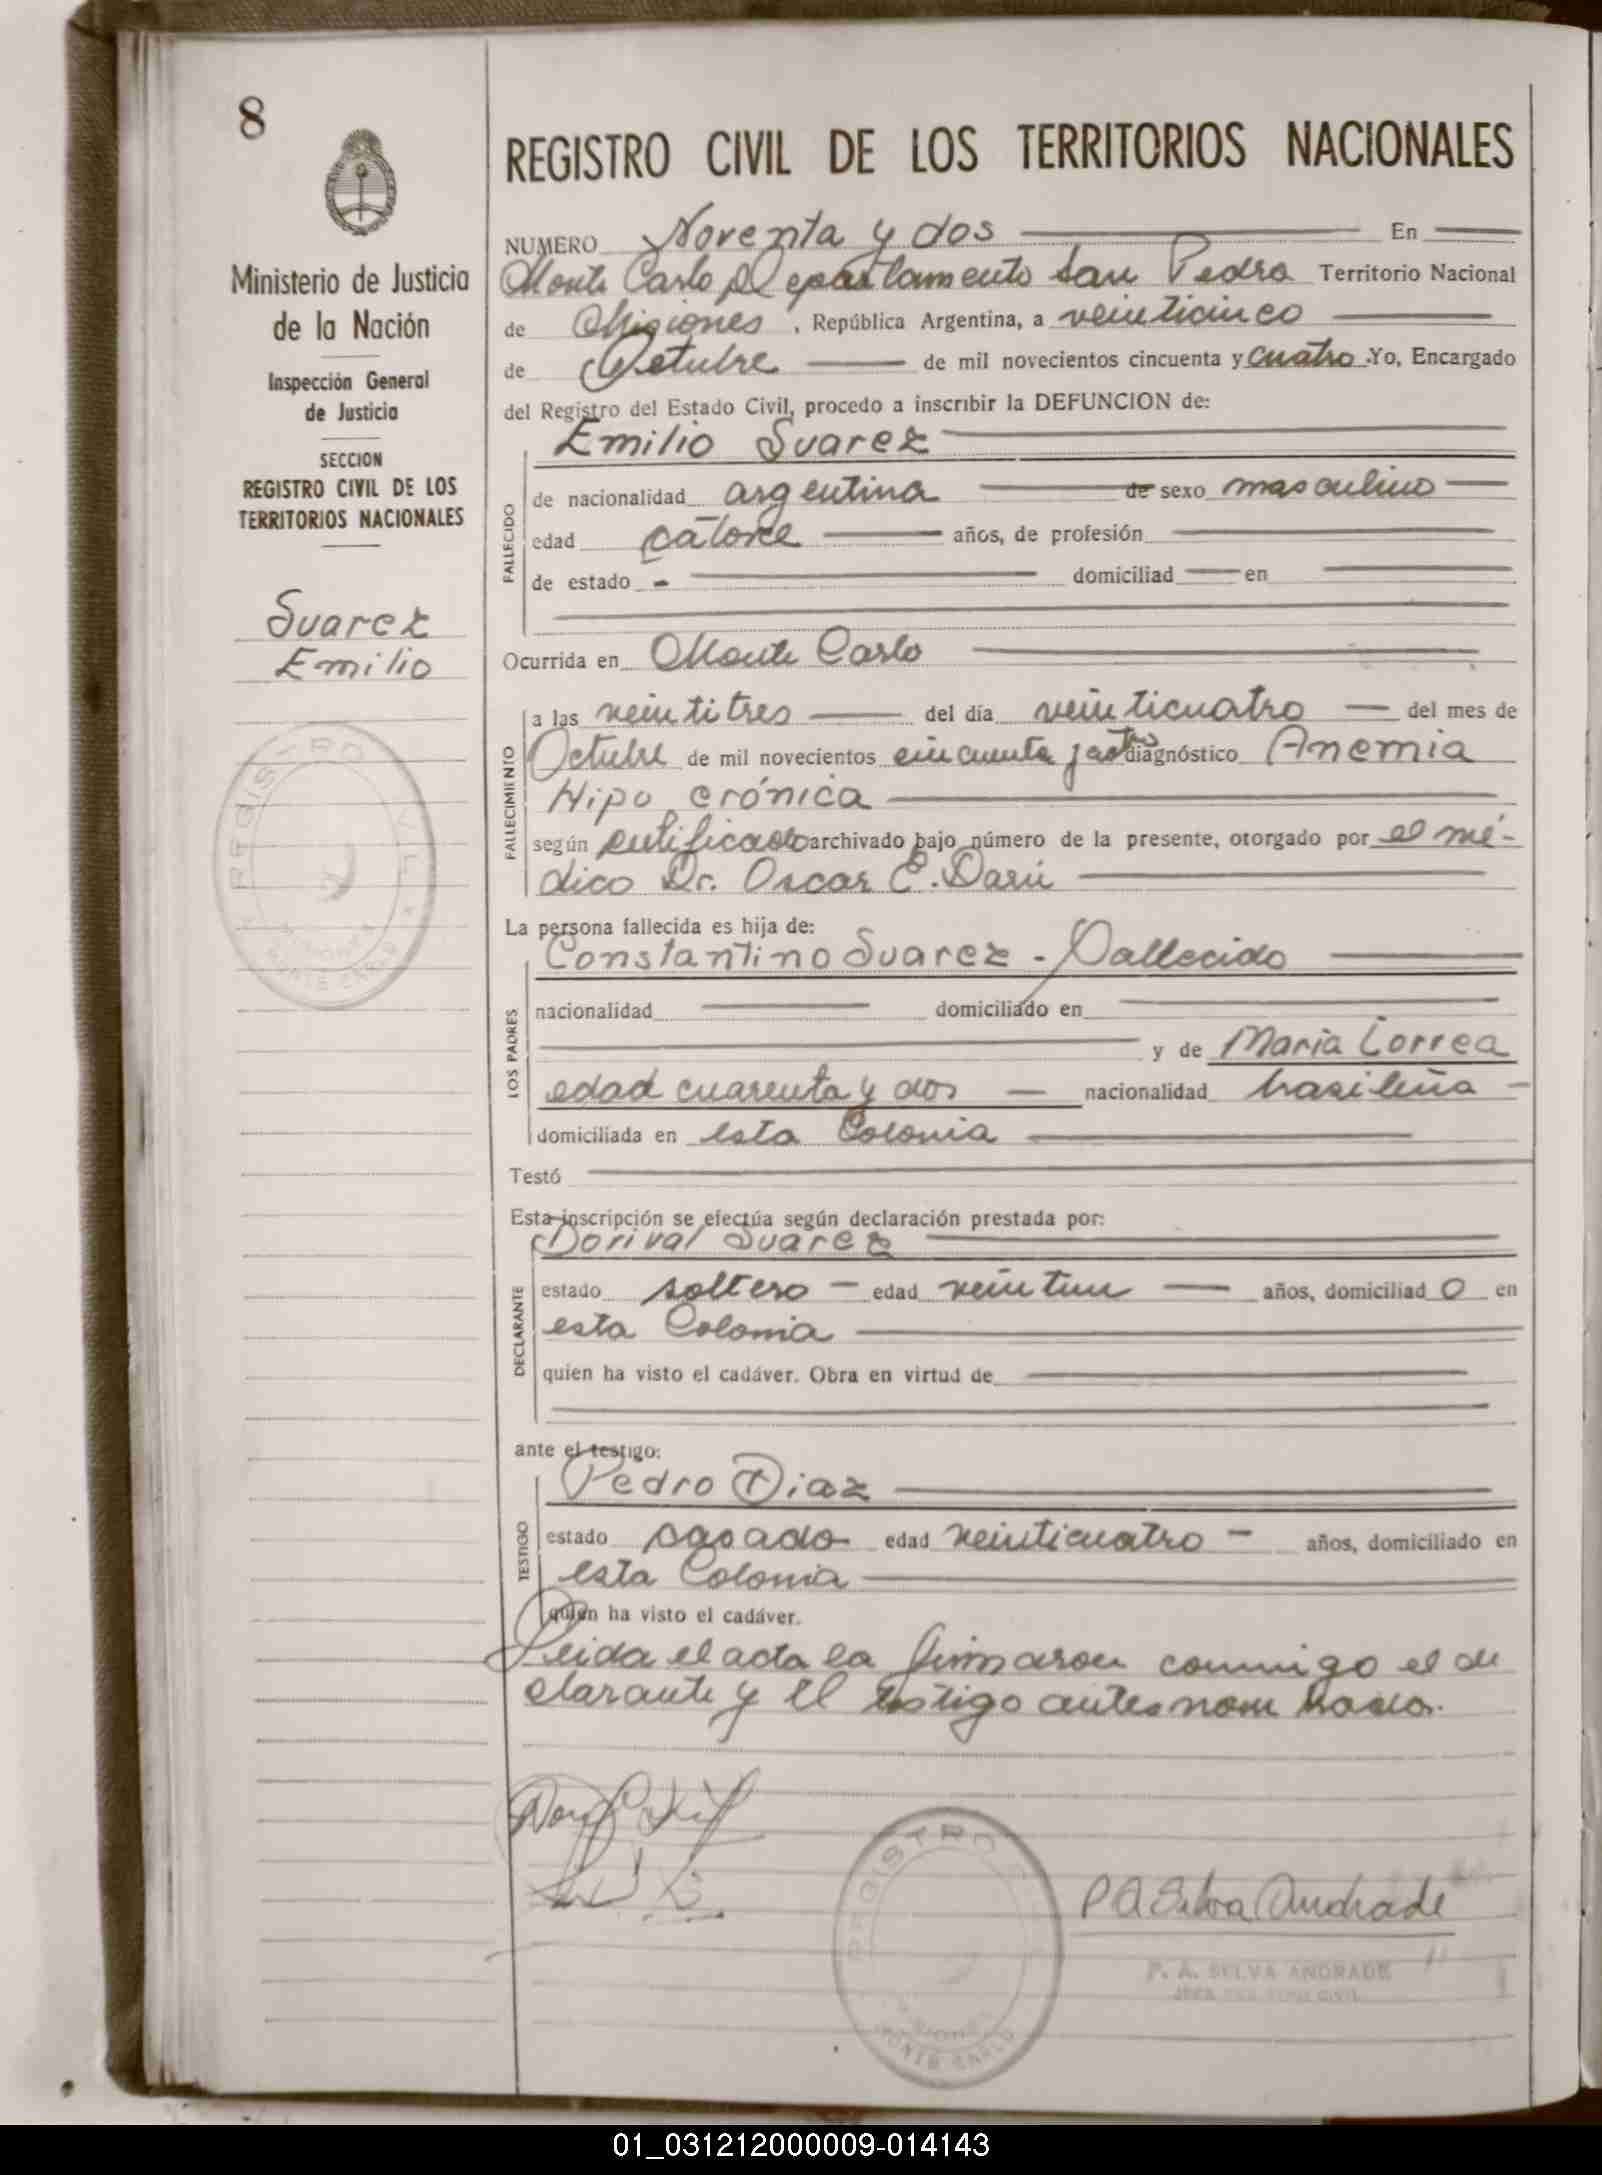 8
Ministerio de Justicia
de la Nación
Inspección General
de Justicia
SECCION
REGISTRO CIVIL DE LOS
TERRITORIOS NACIONALES
Suarez
Emilio
REGISTRO CIVIL
MISIONES
MONTE CARLO
REGISTRO CIVIL DE LOS TERRITORIOS NACIONALES
NUMERO Noventa y dos En
Monte Carlo Departamento San Pedro Territorio Nacional
de Misiones, República Argentina, a veinticinco
de Octubre de mil novecientos cincuenta y cuatro Yo, Encargado
del Registro del Estado Civil, procedo a inscribir la DEFUNCION de:
Emilio Suarez
FALLECIDO
de nacionalidad argentina de sexo masculino
edad catorce años, de profesión
de estado - domiciliad en
Ocurrida en Monte Carlo
FALLECIMIENTO
a las veintitres del día veinticuatro del mes de
Octubre de mil novecientos cincuenta diagnóstico Anemia
Hipo crónica
según certificado archivado bajo número de la presente, otorgado por el mé-
dico Dr. Oscar E. Darú
La persona fallecida es hija de:
LOS PADRES
Constantino Suarez - Fallecido
nacionalidad domiciliado en
y de Maria Correa
edad cuarenta y dos nacionalidad brasileña
domiciliada en esta Colonia
Testó
Esta inscripción se efectúa según declaración prestada por:
DECLARANTE
Dorival Suarez
estado soltero - edad veintiun años, domiciliad o en
esta Colonia
quien ha visto el cadáver. Obra en virtud de
ante el testigo:
TESTIGO
Pedro Diaz
estado casado edad veinticuatro - años, domiciliado en
esta Colonia
quien ha visto el cadáver.
Leida el acta la firmaron conmigo el de
clarante y el testigo antes nombrados.
REGISTRO
MISIONES
MONTE CARLO
P A Selva Andrade
P. A. SELVA ANDRADE
01_031212000009-014143